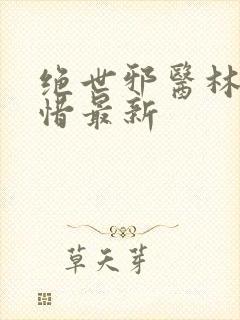 绝世邪醫林
惜最新
草天芽